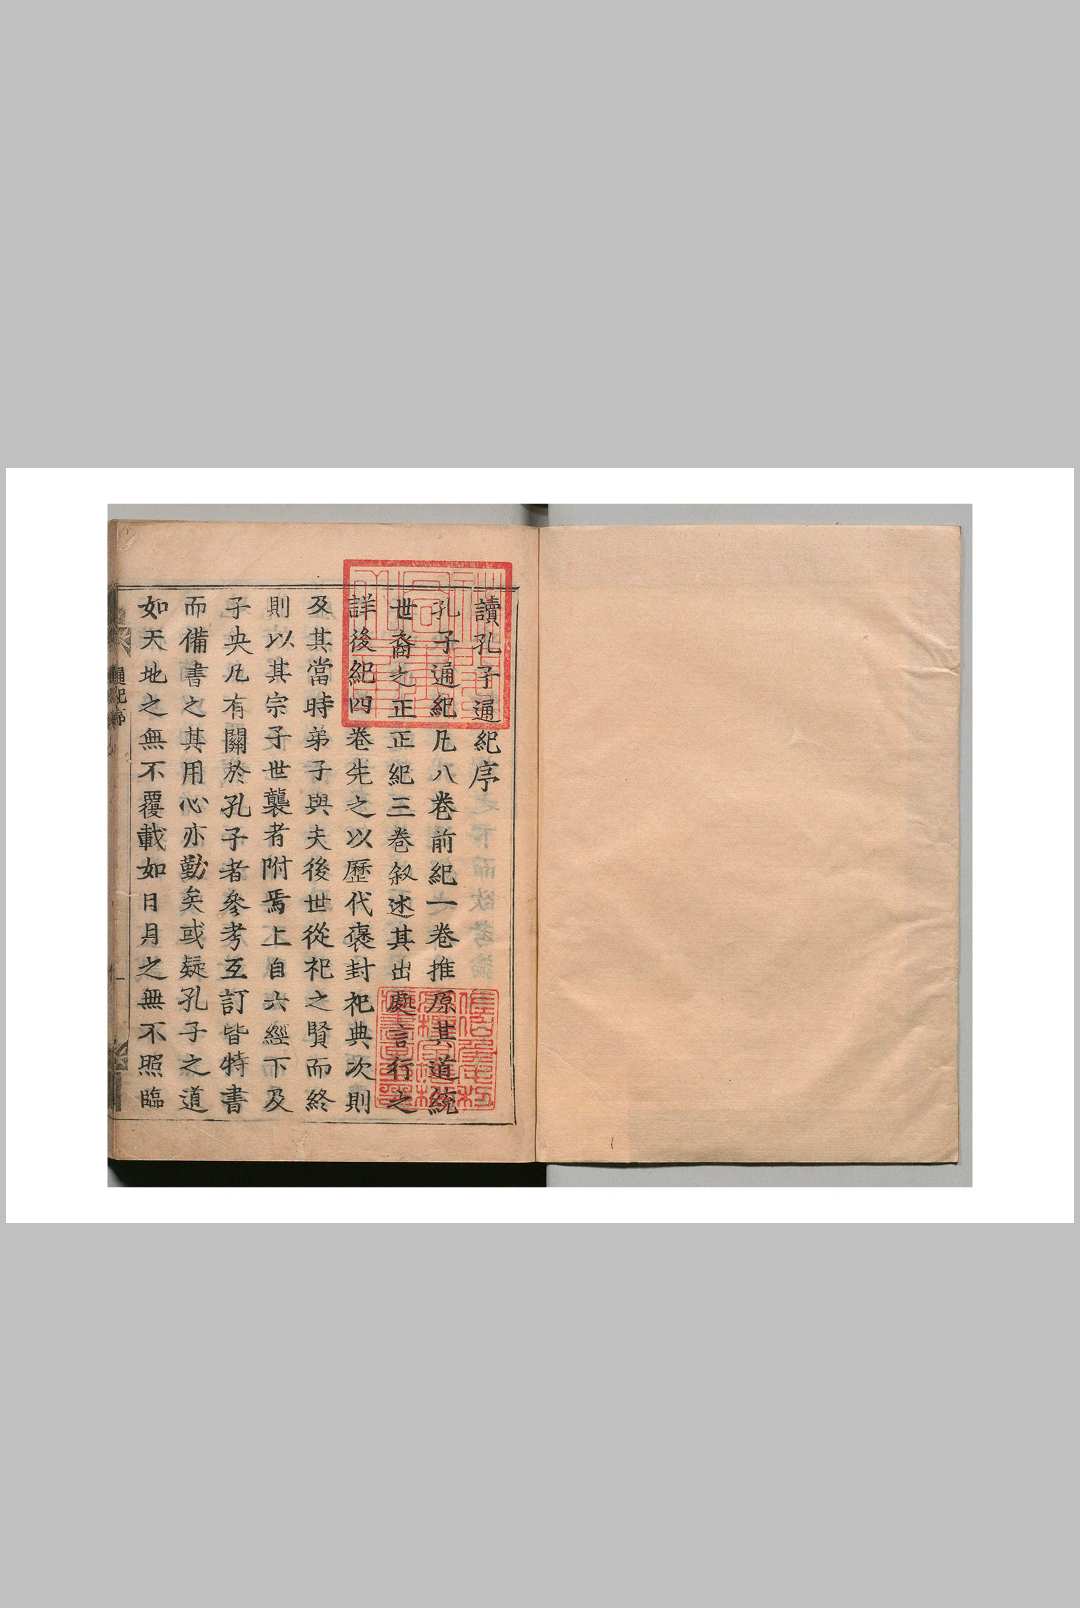 讀孔子通紀序
孔子通紀凡八卷前紀一卷推原其道統
世裔之正正紀三卷叙述其出處言行之
詳後紀四卷先之以歷代褒封祀典次則
及其當時弟子與夫後世從祀之賢而終
則以其宗子世襲者附焉上自六經下及
子史凡有關於孔子者參考互訂皆特書
而備書之其用心亦勤矣或疑孔子之道
如天地之無不覆載如日月之無不照臨
通紀序
一